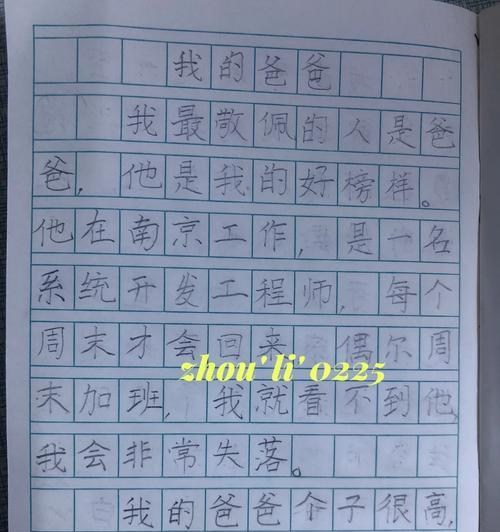 我的爸爸
我最敬佩的人是爸
爸，他是我的好榜样。
他在南京工作，是一名
系统开发工程师，每个
周末才会回来，偶尔周
末加班，我就看不到他，
我会非常失落。
我的爸爸个子很高，
zhou'li' 0225